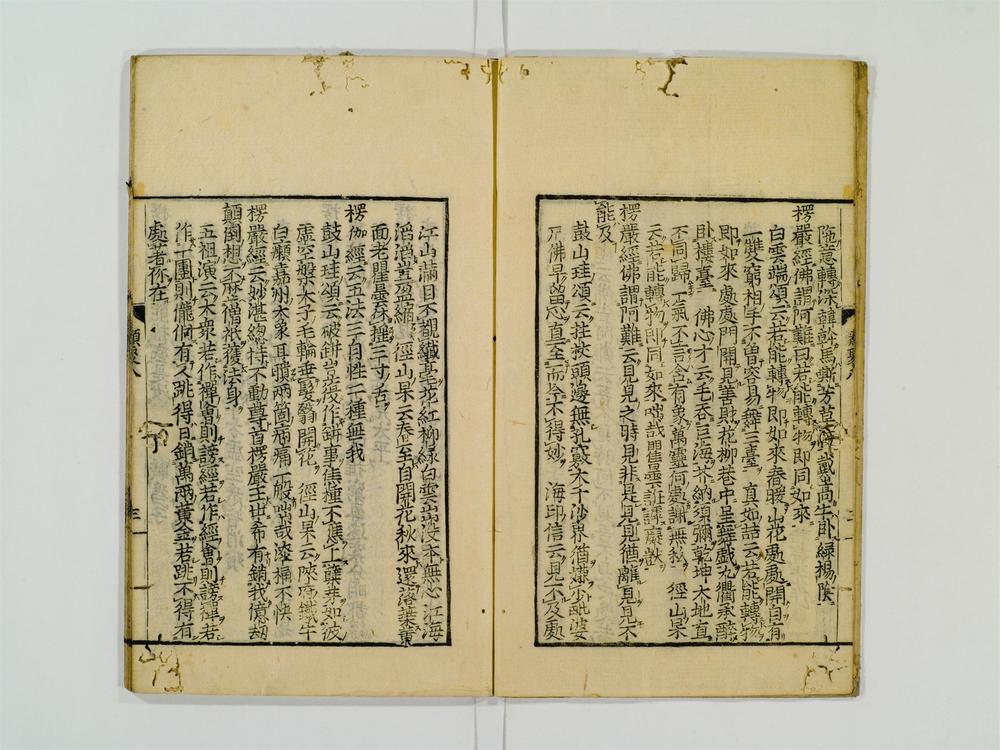 隨意轉深韓幹馬嘶芳草渡戴嵩牛臥綠楊陰
楞嚴經佛謂阿難曰若能轉物即同如來
白雲端頌云若能轉物即如來春暖山花處處開自有
一雙窮相手不曾容易舞三臺 真如喆云若能轉物
即如來處處門開見善財花柳巷中呈舞戲九衢承醉
臥樓臺 佛心才云毛吞巨海芥納須彌乾坤大地直
不同歸一氣不言含有象萬靈何處謝無私 徑山杲
云若能轉物即同如來咄哉瞿曇誑謼癡獃
楞嚴經佛謂阿難云見見之時見非是見見猶離見見不
能及
鼓山珪頌云拄杖頭邊無孔竅大千沙界猶嫌少毗婆
尸佛早留心直至而今不得妙 海印信云見不及處
江山滿目不覩纖毫花紅柳綠白雲出沒本無心江海
滔滔豈盈縮 徑山杲云春至自開花秋來還落葉黃
面老瞿曇休搖三寸舌
楞伽經云五法三自性二種無我
鼓山珪頌云破缾豈從作缾事焦種不應生孽芽如彼
虛空槃大子毛輪垂髮翳開花 徑山杲云陝府鐵牛
白癩嘉州大象耳聵兩箇病痛一般咄哉漆桶不快
楞嚴經云妙湛總持不動尊首楞嚴王世希有銷我億劫
顛倒想不歷僧祇獲法身
五祖演云大衆若作禪會則謗經若作經會則謗禪若
作一團則儱侗有人跳得日銷萬兩黃金若跳不得有
處著你在